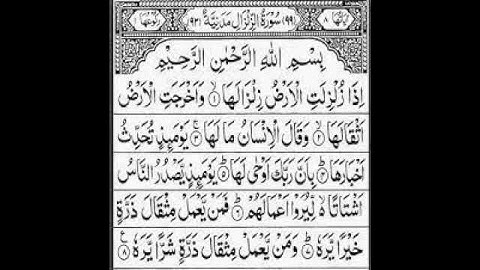 اٰيَاتُهَا ٨ (٩٩) سُوْرَةُ الزِّلْزَالِ مَدَنِيَّةٌ (٩٣) رُكُوْعُهَا ١
بِسْمِ اللهِ الرَّحْمٰنِ الرَّحِيْمِ
اِذَا زُلْزِلَتِ الْاَرْضُ زِلْزَالَهَا ۙ﴿١﴾ وَاَخْرَجَتِ الْاَرْضُ
اَثْقَالَهَا ۙ﴿٢﴾ وَقَالَ الْاِنْسَانُ مَا لَهَا ۚ﴿٣﴾ يَوْمَئِذٍ تُحَدِّثُ
اَخْبَارَهَا ۙ﴿٤﴾ بِاَنَّ رَبَّكَ اَوْحٰى لَهَا ؕ﴿٥﴾ يَوْمَئِذٍ يَّصْدُرُ النَّاسُ
اَشْتَاتًا ۙ۬ لِّيُرَوْا اَعْمَالَهُمْ ؕ﴿٦﴾ فَمَنْ يَّعْمَلْ مِثْقَالَ ذَرَّةٍ
خَيْرًا يَّرَهٗ ؕ﴿٧﴾ وَمَنْ يَّعْمَلْ مِثْقَالَ ذَرَّةٍ شَرًّا يَّرَهٗ ﴿٨﴾ ع